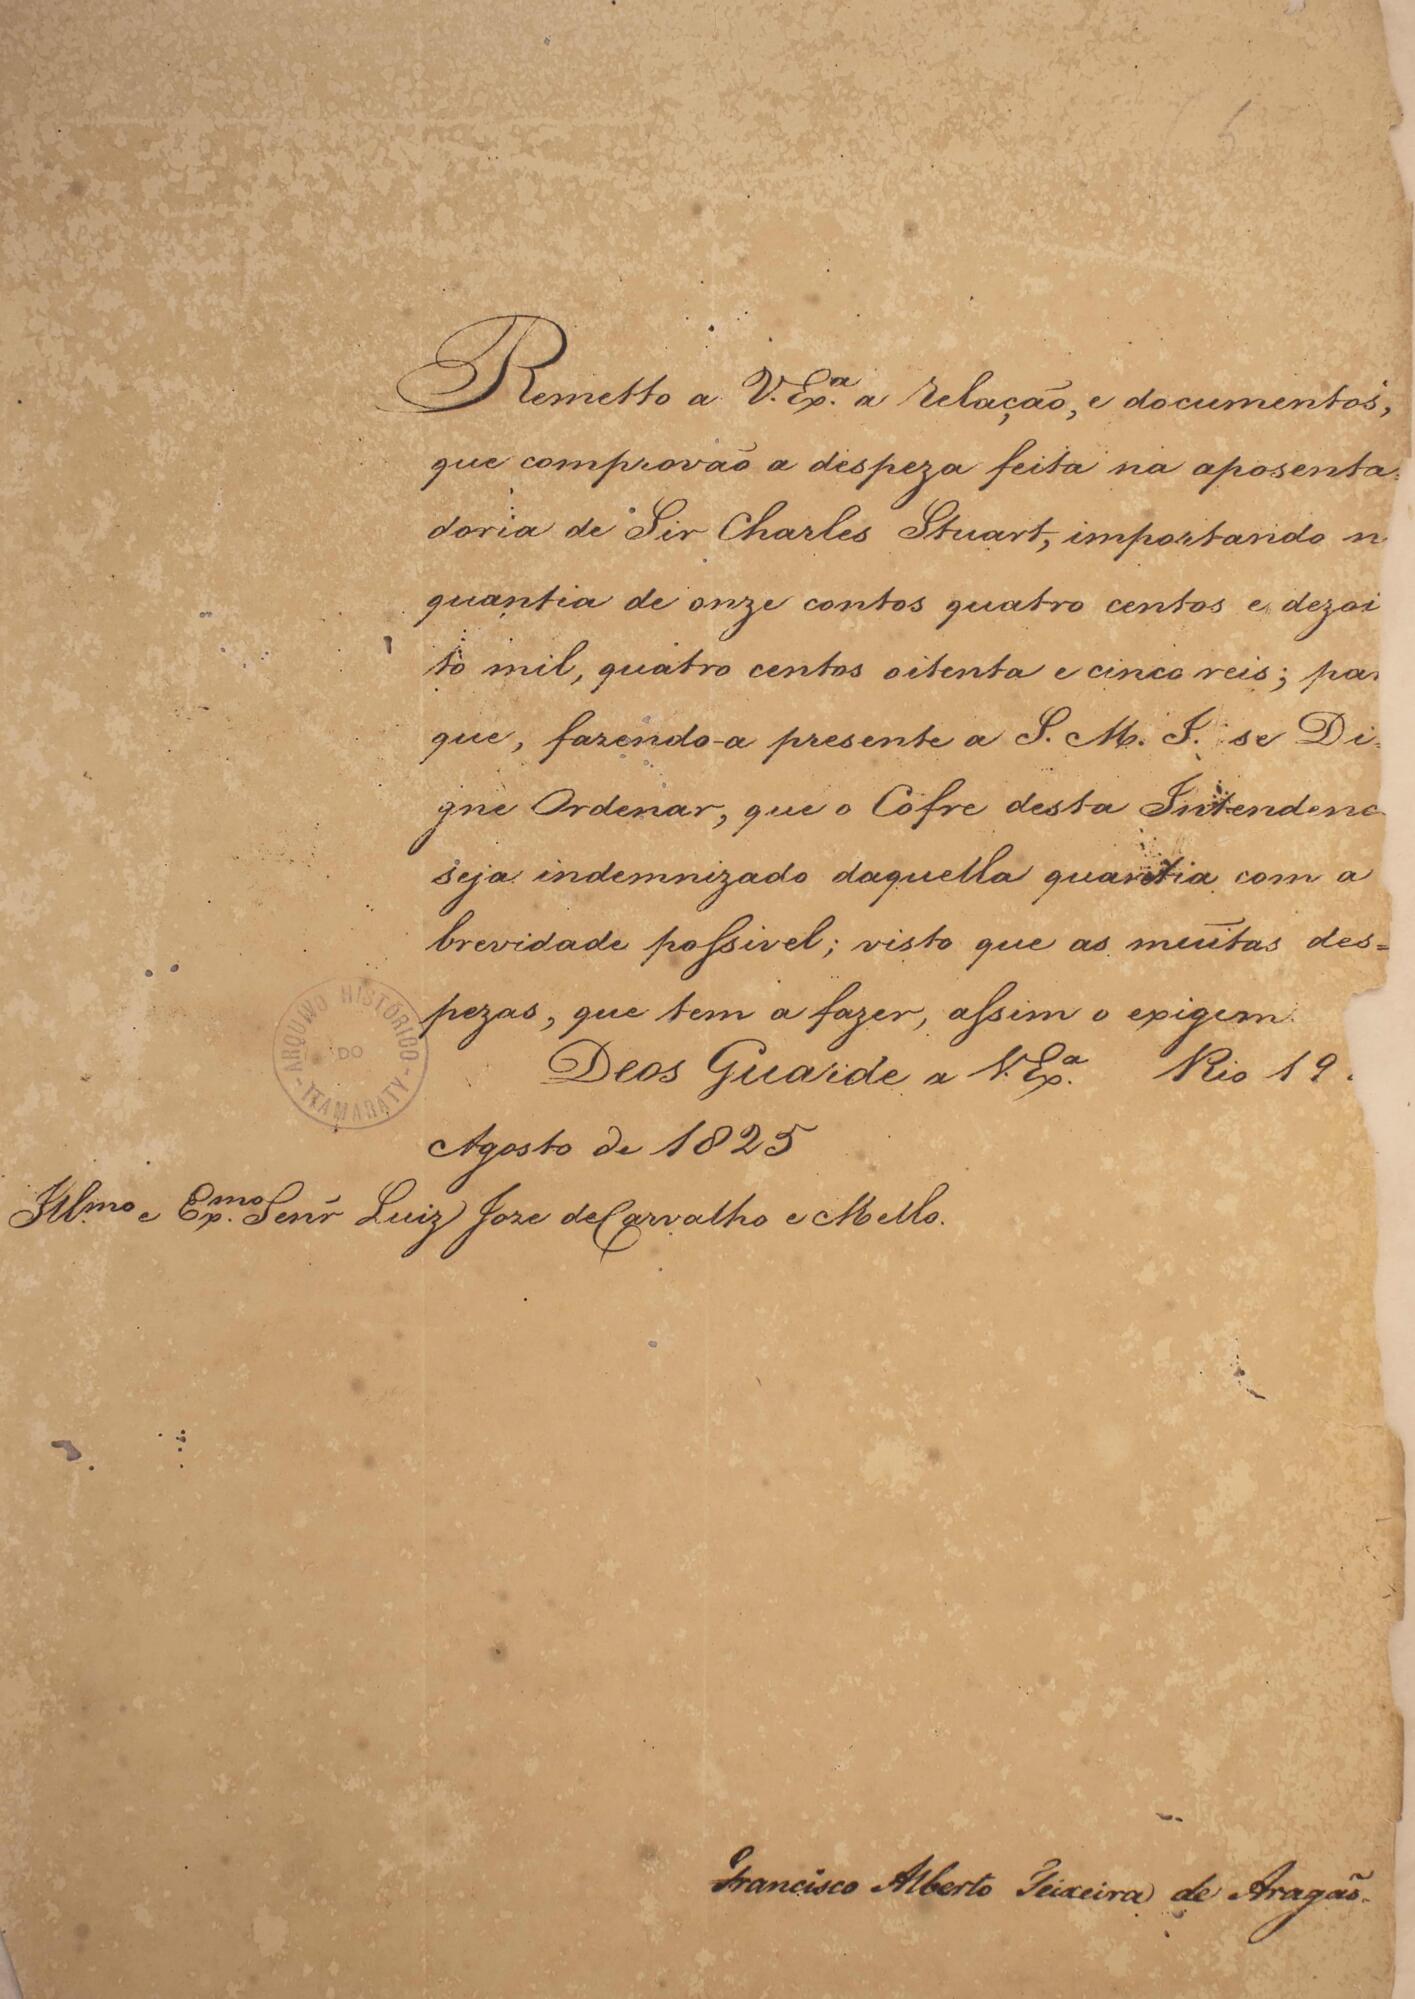 5
Remetto a V. Ex.ª a relação, e documentos,
que comprovão a despeza feita na aposenta
doria de Sir Charles Stuart, importando n
quantia de onze contos quatro centos e dezoi
to mil, quatro centos oitenta e cinco reis; par
que, fazendo-a presente a S. M. I. se Di-
gne Ordenar, que o Cofre desta Intendenc
seja indemnizado daquella quantia com a
brevidade possivel; visto que as muitas des=
pezas, que tem a fazer, assim o exigem.
Deos Guarde a V. Ex.ª Rio 19
Agosto de 1825
Illmo e Ex.mo Senr Luiz Joze de Carvalho e Mello.
ARQUIVO HISTÓRICO
DO
ITAMARATY
Francisco Alberto Teixeira de Aragão.